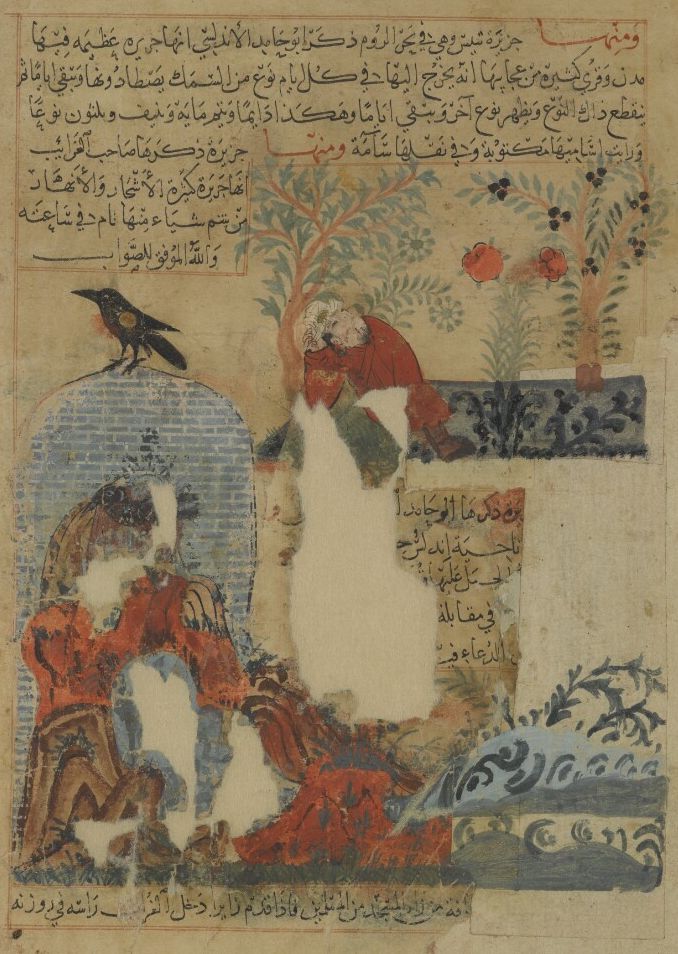 ومنها جزيرة تنيس وهي في بحر الروم ذكر ابو حامد الأندلسي انها جزيرة عظيمة فيها
مدن وقرى كثيرة من عجايبها انه يخرج اليها في كل يام نوع من السمك يصطادونها ويبقي اياما ثم
ينقطع ذلك النوع ويظهر نوع آخر ويبقي اياما وهكذا دايما ويتم مايه ونيف وثلثون نوعا
ورايت اساميها مكتوبة وفي نقلها سآمة ومنها جزيرة ذكرها صاحب الغرائب
انها جزيرة كثيرة الأشجار والأنهار
من شم شياء منها نام في ساعته
والله الموفق للصواب
يرة ذكرها ابو حامد
ناحية اندلس
الجبل عليها
في مقابلة
الدعاء فيه
من زار المسجد من المسلمين فاذا قدم زاير ادخل الغراب راسه في روزنه